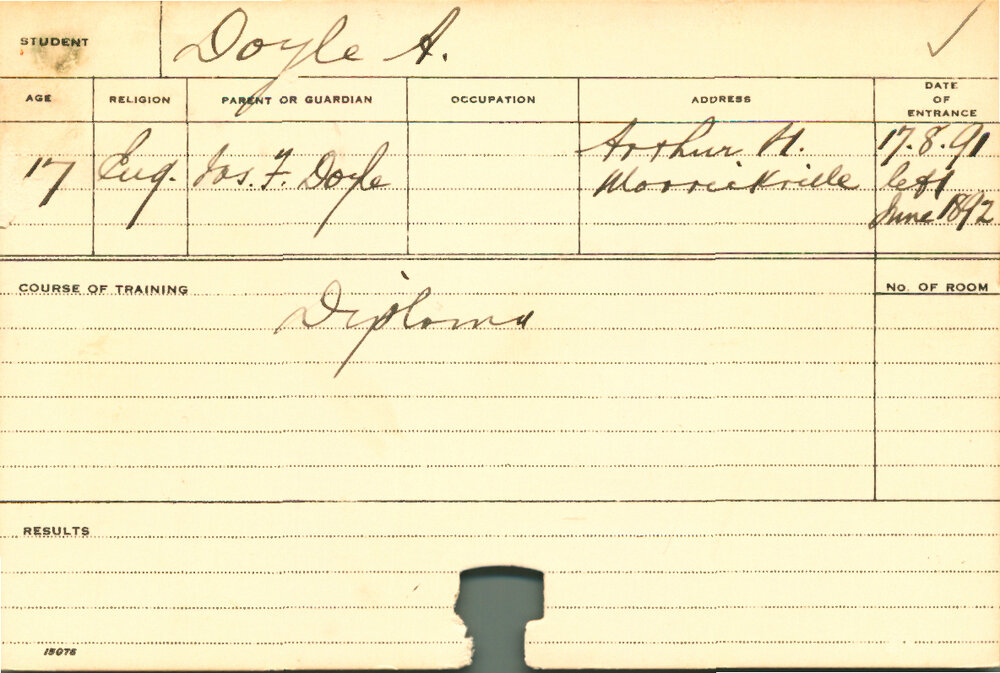 STUDENT Doyle A. ✓
AGE RELIGION PARENT OR GUARDIAN OCCUPATION ADDRESS DATE OF ENTRANCE
17 Eng. Jas. F. Doyle Arthur H. 17.8.91
left
June 1892
COURSE OF TRAINING Diploma No. OF ROOM
RESULTS
15076